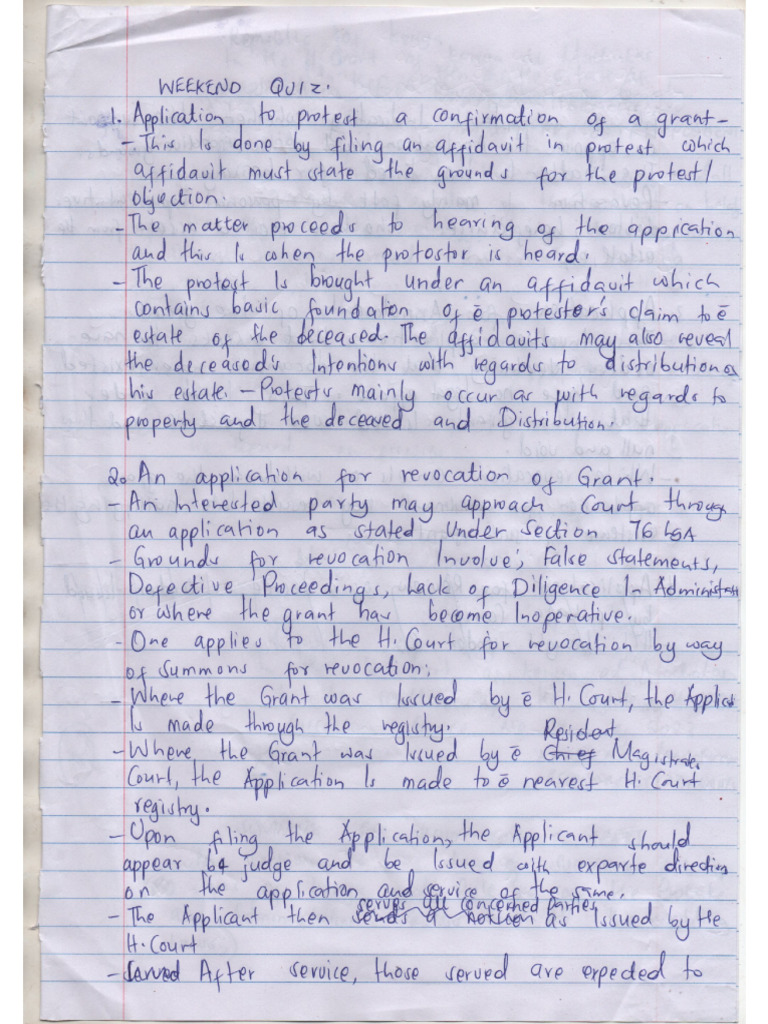 WEEKEND QUIZ.
1. Application to protest a confirmation of a grant -
- This Is done by filing an affidavit in protest which
affidavit must state the grounds for the protest/
objection.
- The matter proceeds to hearing of the application
and this Is when the protostor is heard.
- The protest Is brought under an affidavit which
contains basic foundation of ē protestor's claim to ē
estate of the deceased. The affidavits may also reveal
the deceased's Intentions with regards to distribution of
his estate. - Protests mainly occur as with regards to
property and the deceased and Distribution.
2. An application for revocation of Grant.
- An Interested party may approach Court through
an application as stated Under Section 76 LSA
- Grounds for revocation Involve; False statements,
Defective Proceedings, Lack of Diligence In Administrati
or where the grant has become Inoperative.
- One applies to the H. Court for revocation by way
of summons for revocation;
- Where the Grant was Issued by ē H. Court, the Applicat
Is made through the registry.
Resident
- Where the Grant was Issued by ē Chief Magistrates
Court, the Application Is made to ē nearest H. Court
registry.
- Upon filing the Application, the Applicant should
appear b4 judge and be Issued with exparte direction
on the application and service of the same.
serves all concerned parties
- The Applicant then sends a as Issued by the
H. Court
- Served After service, those served are expected to